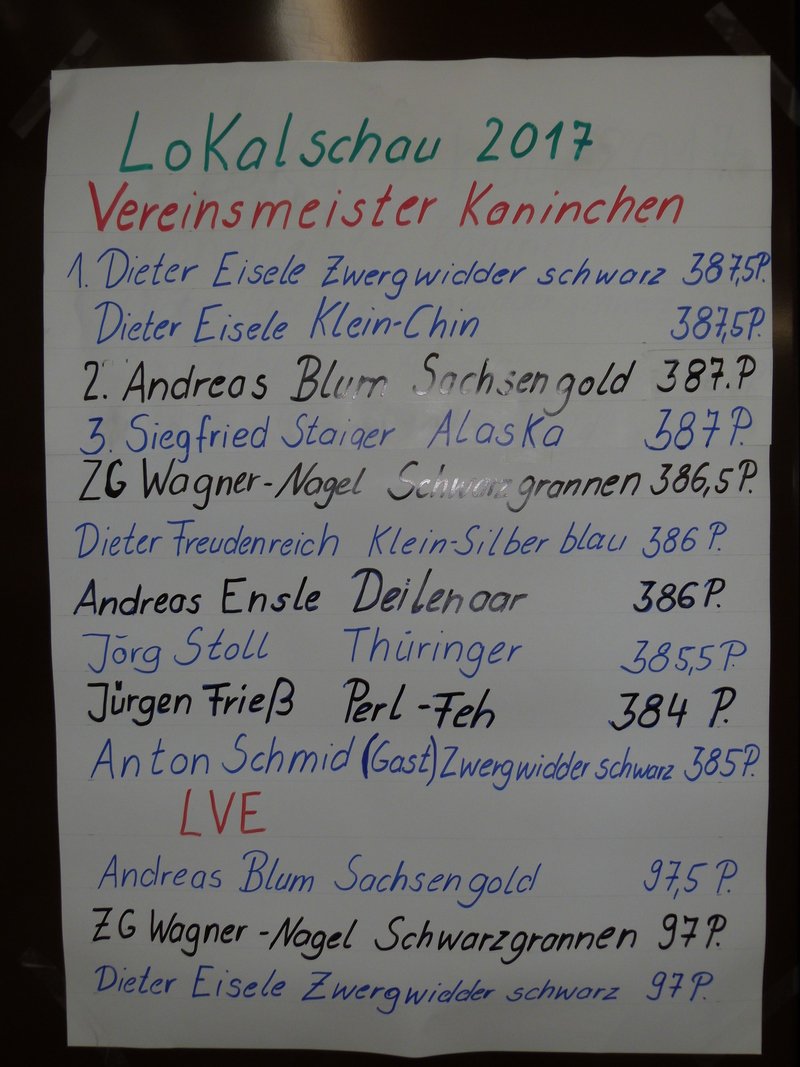 Lokalschau 2017
Vereinsmeister Kaninchen
1. Dieter Eisele Zwergwidder schwarz 387,5P.
Dieter Eisele Klein-Chin 387,5P.
2. Andreas Blum Sachsengold 387.P
3. Siegfried Staiger Alaska 387 P.
ZG Wagner-Nagel Schwarzgrannen 386,5 P.
Dieter Freudenreich Klein-Silber blau 386 P.
Andreas Ensle Deilenaar 386 P.
Jörg Stoll Thüringer 385,5 P
Jürgen Frieß Perl-Feh 384 P.
Anton Schmid (Gast) Zwergwidder schwarz 385P.
LVE
Andreas Blum Sachsengold 97,5 P.
ZG Wagner-Nagel Schwarzgrannen 97 P.
Dieter Eisele Zwergwidder schwarz 97 P.